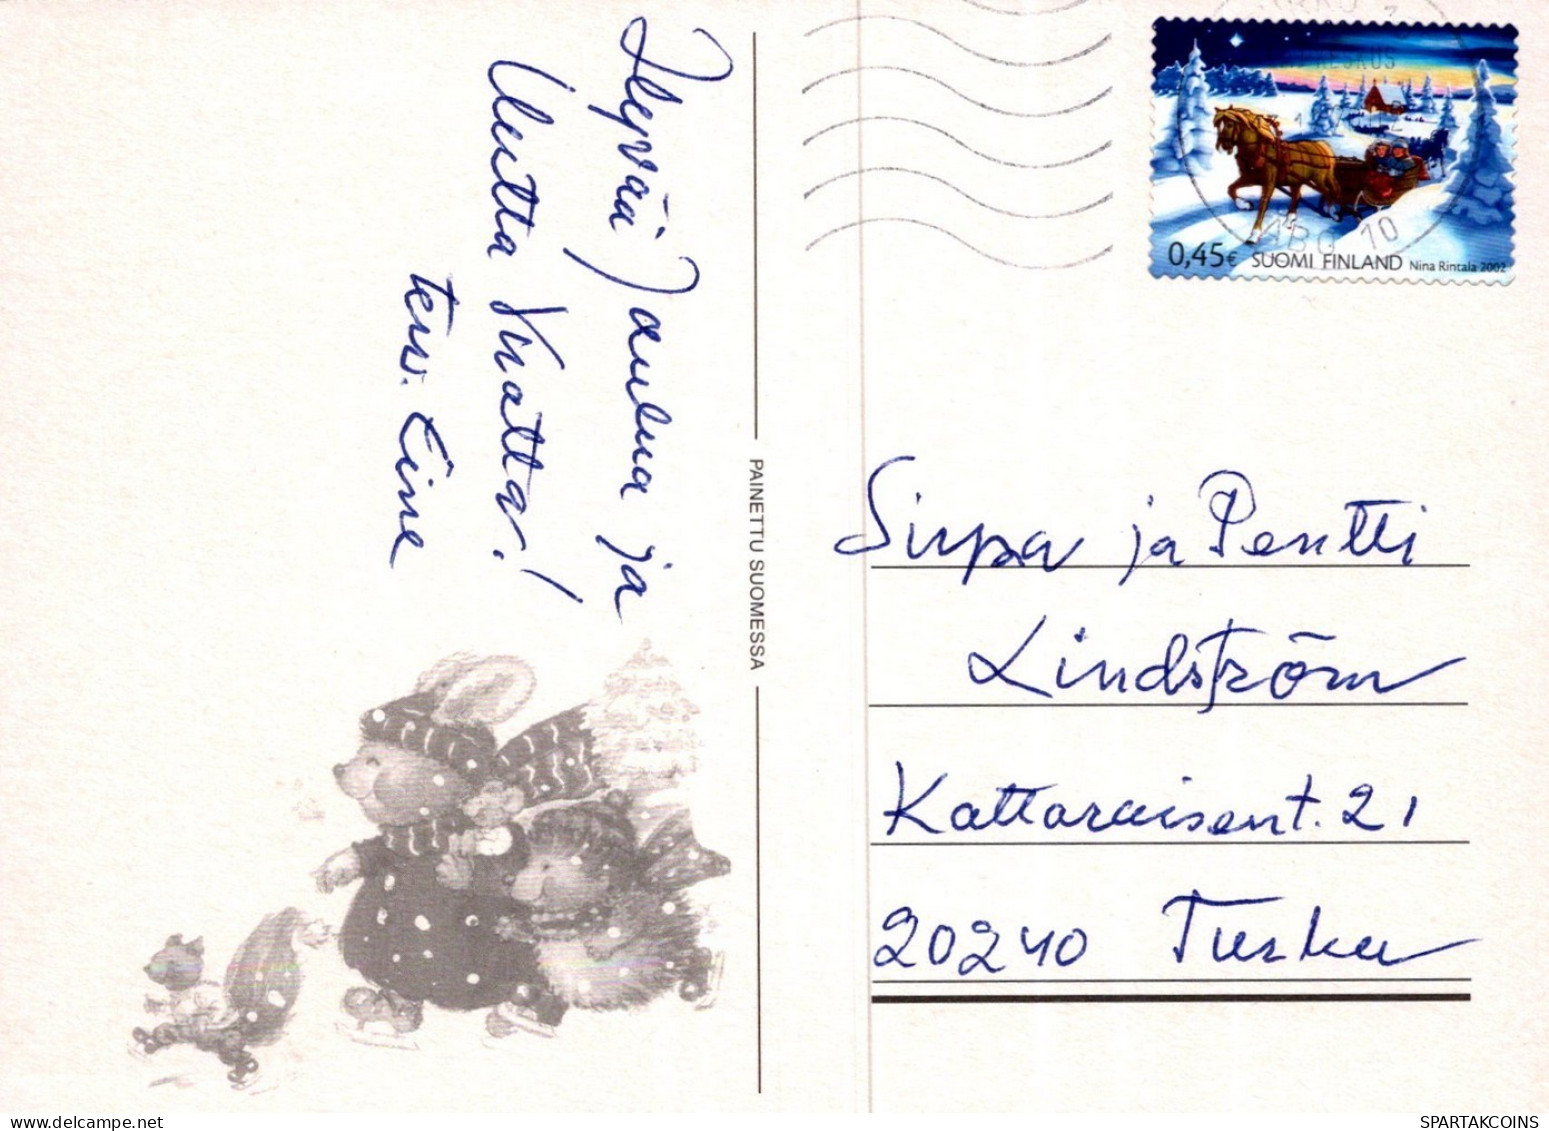 Hyvää Joulua ja
Uutta Vuotta!
terv. Eine
PAINETTU SUOMESSA
0,45€ SUOMI FINLAND Nina Rintala 2002
KESKUS
ABO 10
Sirpa ja Pentti
Lindström
Kattaraisent. 21
20240 Turku
SPARTAKCOINS